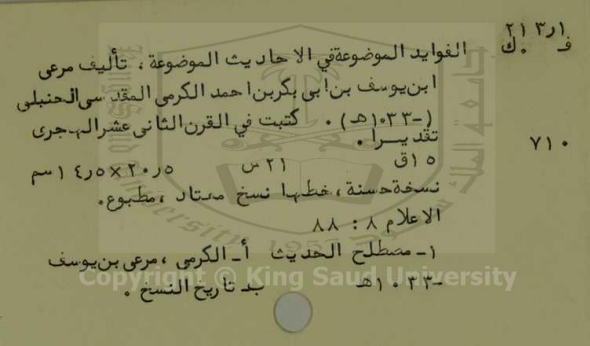 ٢١٣ر١
ف ٠ك
الفوايد الموضوعة في الاحاديث الموضوعة ، تأليف مرعى
ابن يوسف بن ابى بكر بن احمد الكرمى المقدسى الحنبلى
( -١٠٣٣هـ) ٠ كتبت في القرن الثانى عشر الهجرى
تقديـــرا ٠
٧١٠
١٥ق ٢١س ٢٠ر٥×١٤ر٥سم
نسخة حسنة ، خطها نسخ معتاد ، مطبوع ٠
الاعلام ٨ : ٨٨
١- مصطلح الحديث أ- الكرمى ، مرعى بن يوسف
-١٠٣٣هـ بـ تاريخ النسخ ٠
Copyright © King Saud University